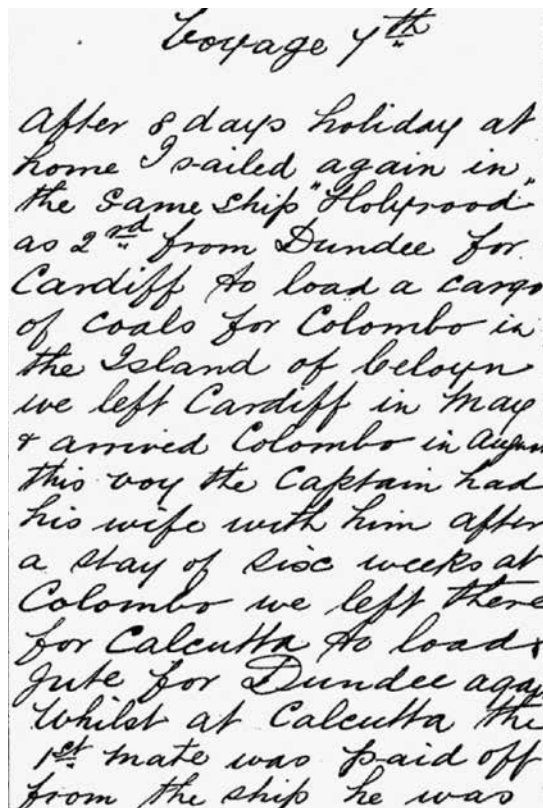 Voyage 7th
After 8 days holiday at
home I sailed again in
the same ship "Holyrood"
as 2nd from Dundee for
Cardiff to load a cargo
of coals for Colombo in
the Island of Celoyn
we left Cardiff in May
& arrived Colombo in Augus
this voy the Captain had
his wife with him after
a stay of six weeks at
Colombo we left there
for Calcutta to load
Jute for Dundee aga
Whilst at Calcutta the
1st mate was paid off
from the ship he was